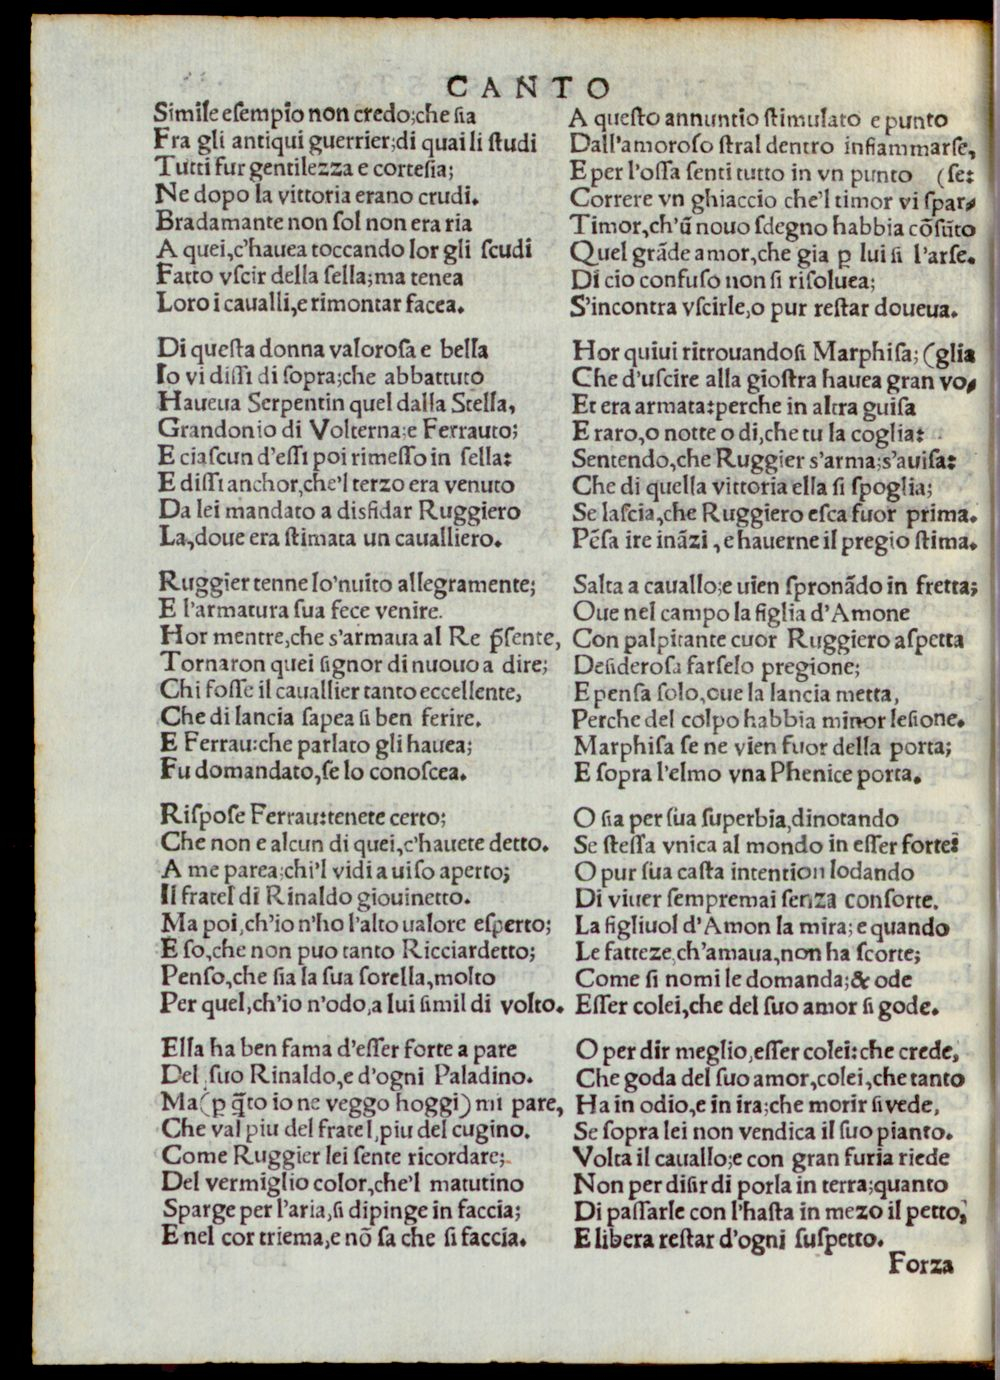 CANTO
Simile esempio non credo;che sia
Fra gli antiqui guerrier;di quai li studi
Tutti fur gentilezza e cortesia;
Ne dopo la vittoria erano crudi.
Bradamante non sol non era ria
A quei,c'hauea toccando lor gli scudi
Fatto vscir della sella;ma tenea
Loro i caualli,e rimontar facea.
Di questa donna valorosa e bella
Io vi dissi di sopra;che abbattuto
Haueua Serpentin quel dalla Stella,
Grandonio di Volterna;e Ferrauto;
E ciascun d'essi poi rimesso in sella:
E dissi anchor,che'l terzo era venuto
Da lei mandato a disfidar Ruggiero
La,doue era stimata un caualliero.
Ruggier tenne lo'nuito allegramente;
E l'armatura sua fece venire.
Hor mentre,che s'armaua al Re p̃sente,
Tornaron quei signor di nuouo a dire;
Chi fosse il cauallier tanto eccellente,
Che di lancia sapea si ben ferire.
E Ferrau:che parlato gli hauea;
Fu domandato,se lo conoscea.
Rispose Ferrau:tenete certo;
Che non e alcun di quei,c'hauete detto.
A me parea;chi'l vidi a uiso aperto;
Il fratel di Rinaldo giouinetto.
Ma poi,ch'io n'ho l'alto ualore esperto;
E so,che non puo tanto Ricciardetto;
Penso,che sia la sua sorella,molto
Per quel,ch'io n'odo,a lui simil di volto.
Ella ha ben fama d'esser forte a pare
Del suo Rinaldo,e d'ogni Paladino.
Ma(ꝑ q̃to io ne veggo hoggi) mi pare,
Che val piu del fratel,piu del cugino.
Come Ruggier lei sente ricordare;
Del vermiglio color,che'l matutino
Sparge per l'aria,si dipinge in faccia;
E nel cor triema,e nõ sa che si faccia.
A questo annuntio stimulato e punto
Dall'amoroso stral dentro infiammarse,
E per l'ossa senti tutto in vn punto (se:
Correre vn ghiaccio che'l timor vi spar-
Timor,ch'ũ nouo sdegno habbia cõsũto
Quel grãde amor,che gia ꝑ lui si l'arse.
Di cio confuso non si risoluea;
S'incontra vscirle,o pur restar doueua.
Hor quiui ritrouandosi Marphisa; (glia
Che d'uscire alla giostra hauea gran vo-
Et era armata:perche in altra guisa
E raro,o notte o di,che tu la coglia:
Sentendo,che Ruggier s'arma;s'auisa:
Che di quella vittoria ella si spoglia;
Se lascia,che Ruggiero esca fuor prima.
Pẽsa ire inãzi,e hauerne il pregio stima.
Salta a cauallo;e uien spronãdo in fretta;
Oue nel campo la figlia d'Amone
Con palpitante cuor Ruggiero aspetta
Desiderosa farselo pregione;
E pensa solo,oue la lancia metta,
Perche del colpo habbia minor lesione.
Marphisa se ne vien fuor della porta;
E sopra l'elmo vna Phenice porta.
O sia per sua superbia,dinotando
Se stessa vnica al mondo in esser forte:
O pur sua casta intention lodando
Di viuer sempremai senza consorte.
La figliuol d'Amon la mira;e quando
Le fatteze,ch'amaua,non ha scorte;
Come si nomi le domanda;& ode
Esser colei,che del suo amor si gode.
O per dir meglio,esser colei:che crede,
Che goda del suo amor,colei,che tanto
Ha in odio,e in ira;che morir si vede,
Se sopra lei non vendica il suo pianto.
Volta il cauallo;e con gran furia riede
Non per disir di porla in terra;quanto
Di passarle con l'hasta in mezo il petto,
E libera restar d'ogni suspetto.
Forza